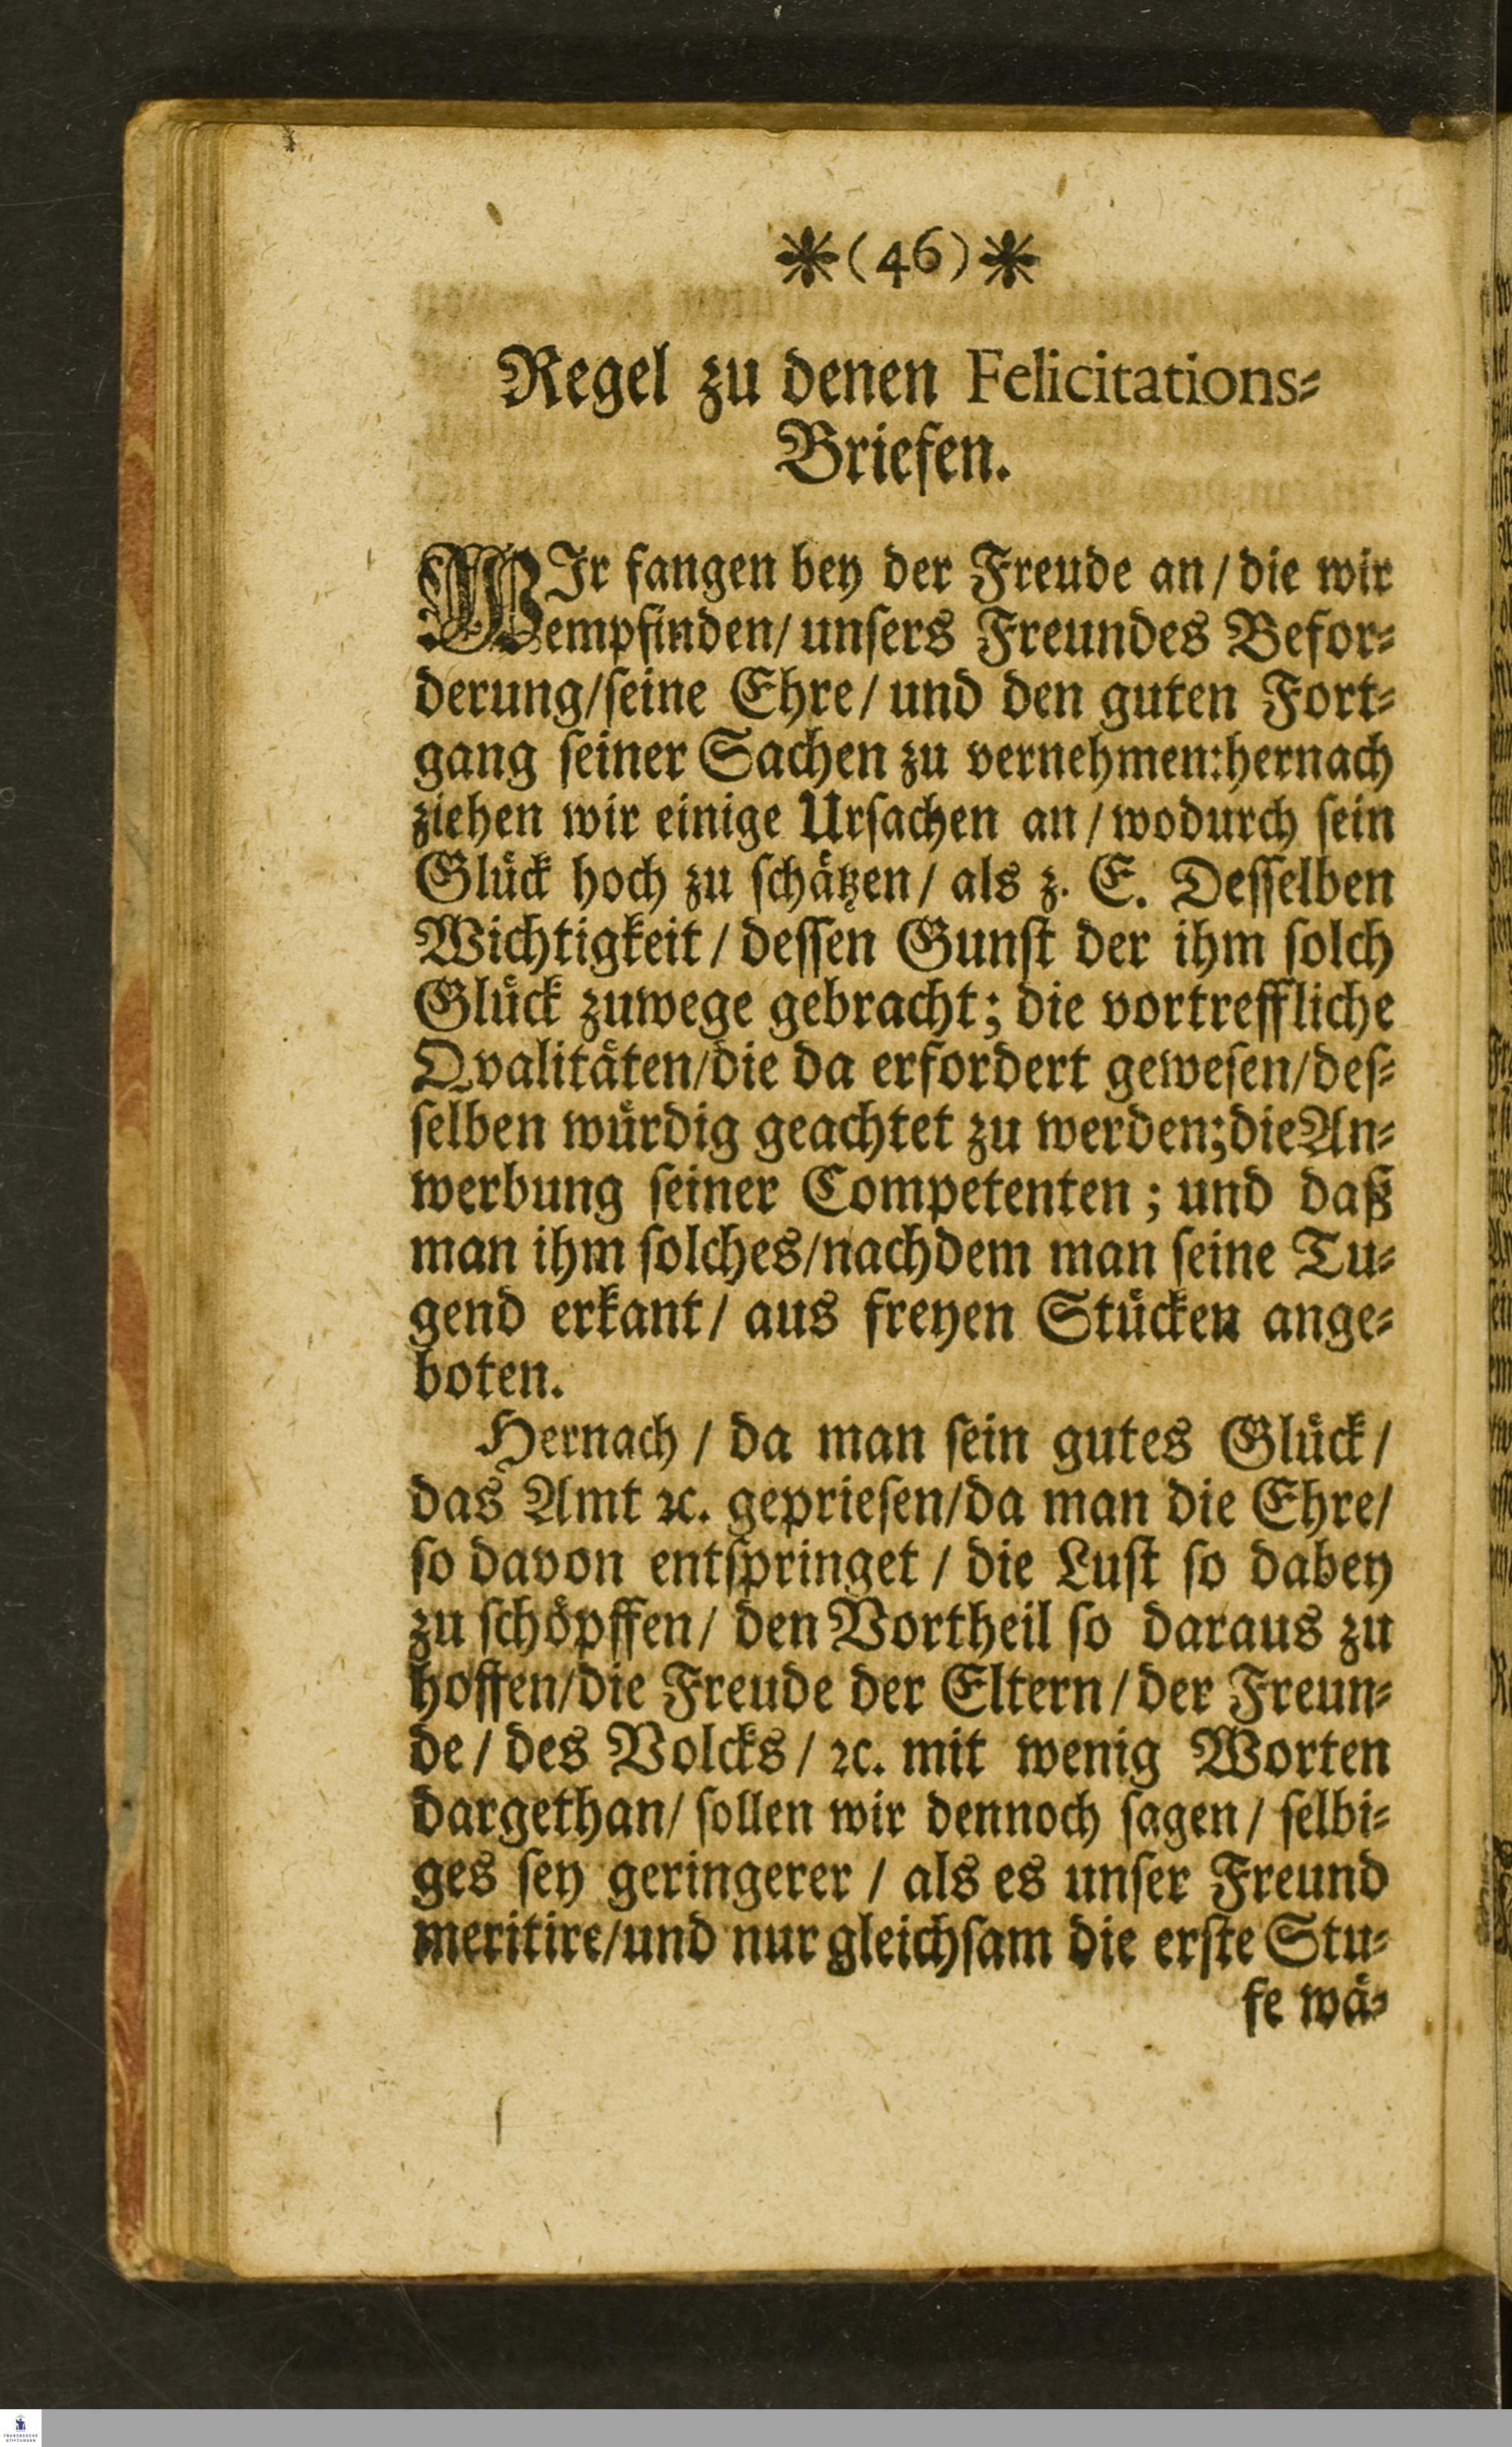 *(46)*
Regel zu denen Felicitations-
Briefen.
WIr fangen bey der Freude an/ die wir
empfinden/ unsers Freundes Befor-
derung/seine Ehre/ und den guten Fort-
gang seiner Sachen zu vernehmen:hernach
ziehen wir einige Ursachen an/ wodurch sein
Glück hoch zu schätzen/ als z. E. Desselben
Wichtigkeit/ dessen Gunst der ihm solch
Glück zuwege gebracht; die vortreffliche
Qvalitäten/die da erfordert gewesen/des-
selben würdig geachtet zu werden;die An-
werbung seiner Competenten; und daß
man ihm solches/nachdem man seine Tu-
gend erkant/ aus freyen Stücken ange-
boten.
Hernach / da man sein gutes Glück/
das Amt ꝛc. gepriesen/da man die Ehre/
so davon entspringet / die Lust so dabey
zu schöpffen/ den Vortheil so daraus zu
hoffen/die Freude der Eltern/ der Freun-
de/ des Volcks/ ꝛc. mit wenig Worten
dargethan/ sollen wir dennoch sagen/ selbi-
ges sey geringerer / als es unser Freund
meritire/und nur gleichsam die erste Stu-
fe wä-
FRANCKESCHE
STIFTUNGEN